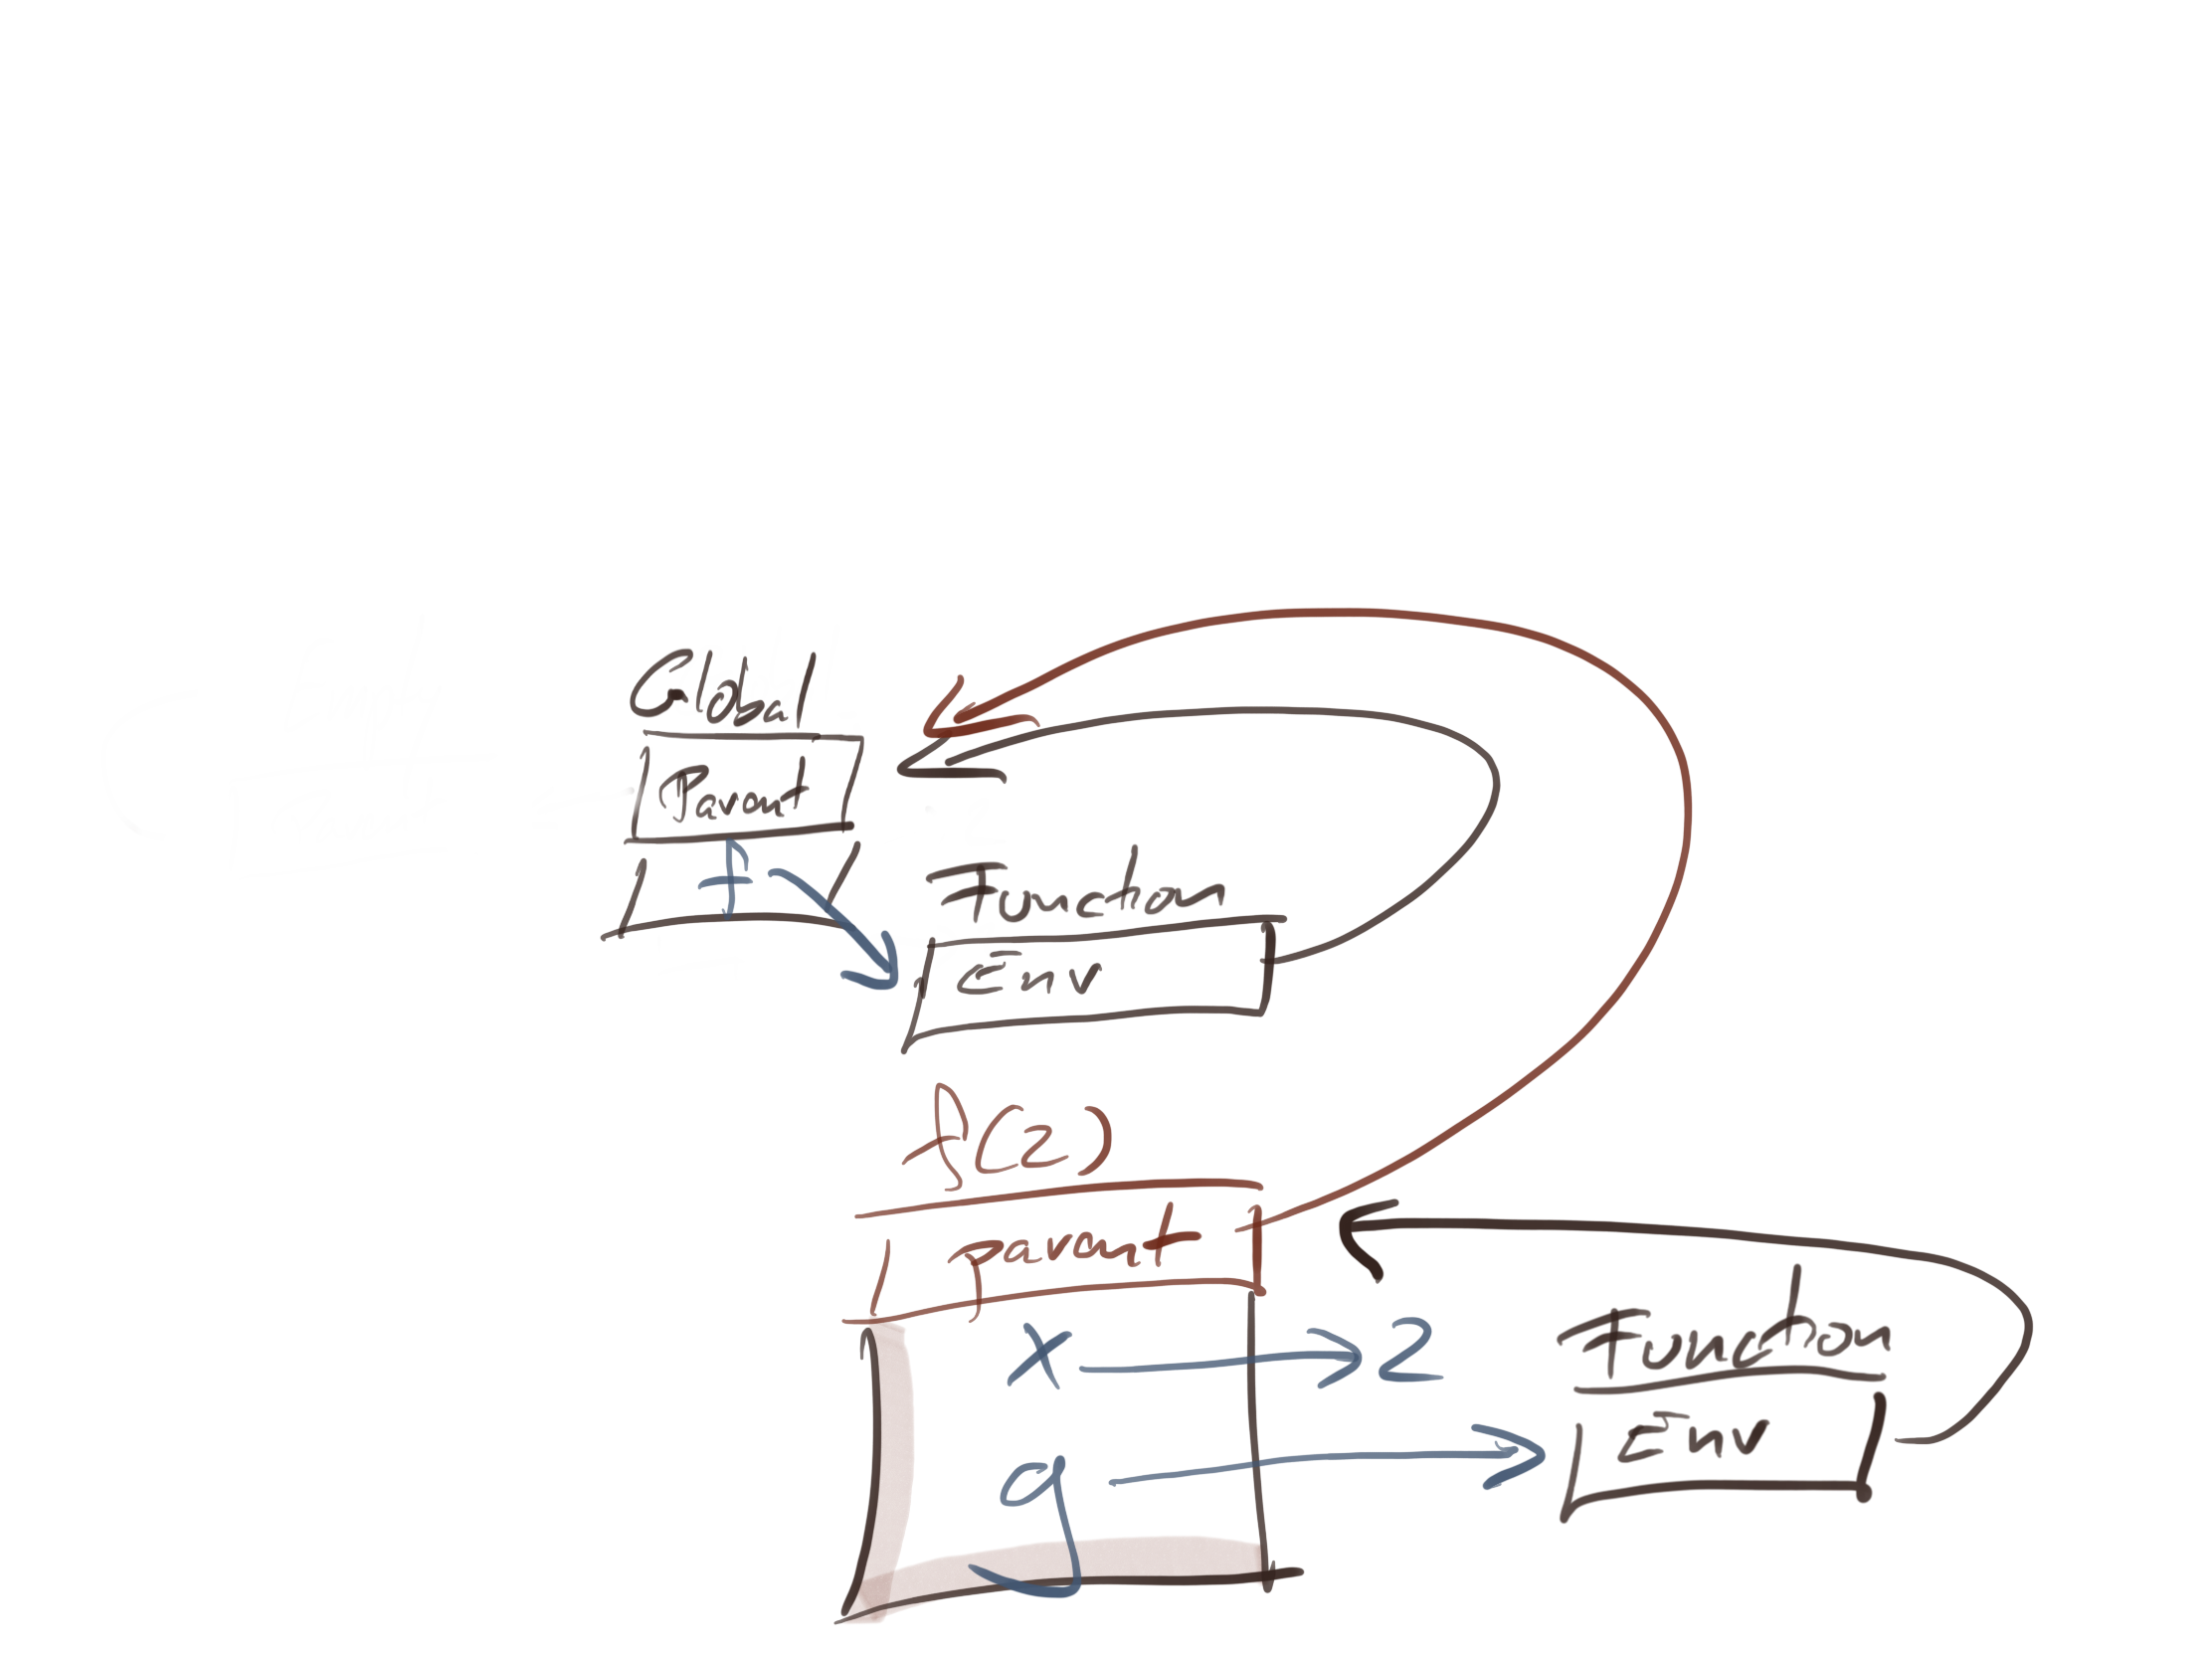 Global
Parent
f
Function
Env
f(2)
parent
x 2
g
Function
Env